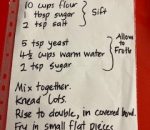 10 cups flour
1 tbsp sugar } Sift
2 tsp salt
5 tsp yeast
4½ cups warm water } Allow to Froth
2 tsp sugar
Mix together.
Knead lots.
Rise to double, in covered bowl.
Fry in small flat pieces